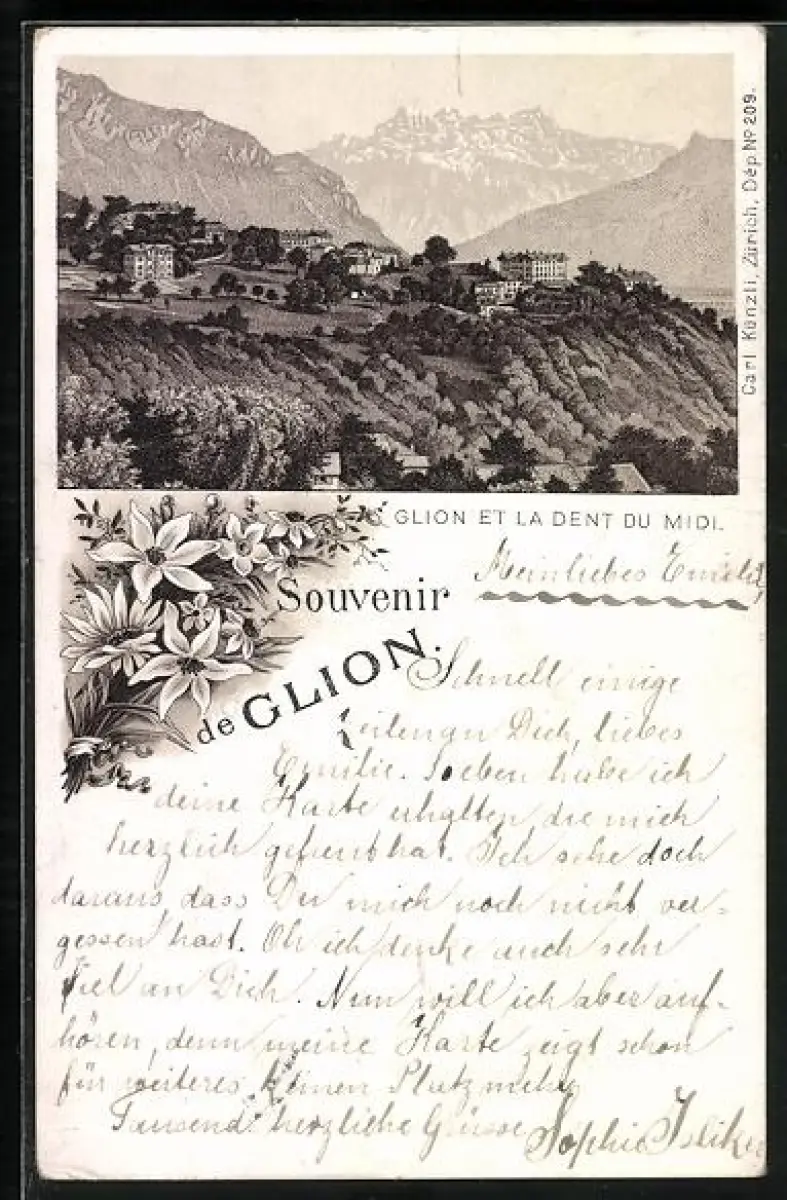 Carl Künzli, Zürich, Dép. Nº 209.
GLION ET LA DENT DU MIDI.
Souvenir
de GLION.
Mein liebes Emilie!
Schnell einige
Zeilen an Dich, liebes
Emilie. Soeben habe ich
deine Karte erhalten die mich
herzlich gefreut hat. Ich sehe doch
daraus, dass Du mich noch nicht ver-
gessen hast. Oh ich denke auch sehr
viel an Dich. Nun will ich aber auf-
hören, denn meine Karte zeigt schon
für weiteres keinen Platz mehr
Tausend herzliche Grüsse Sophie Isliker